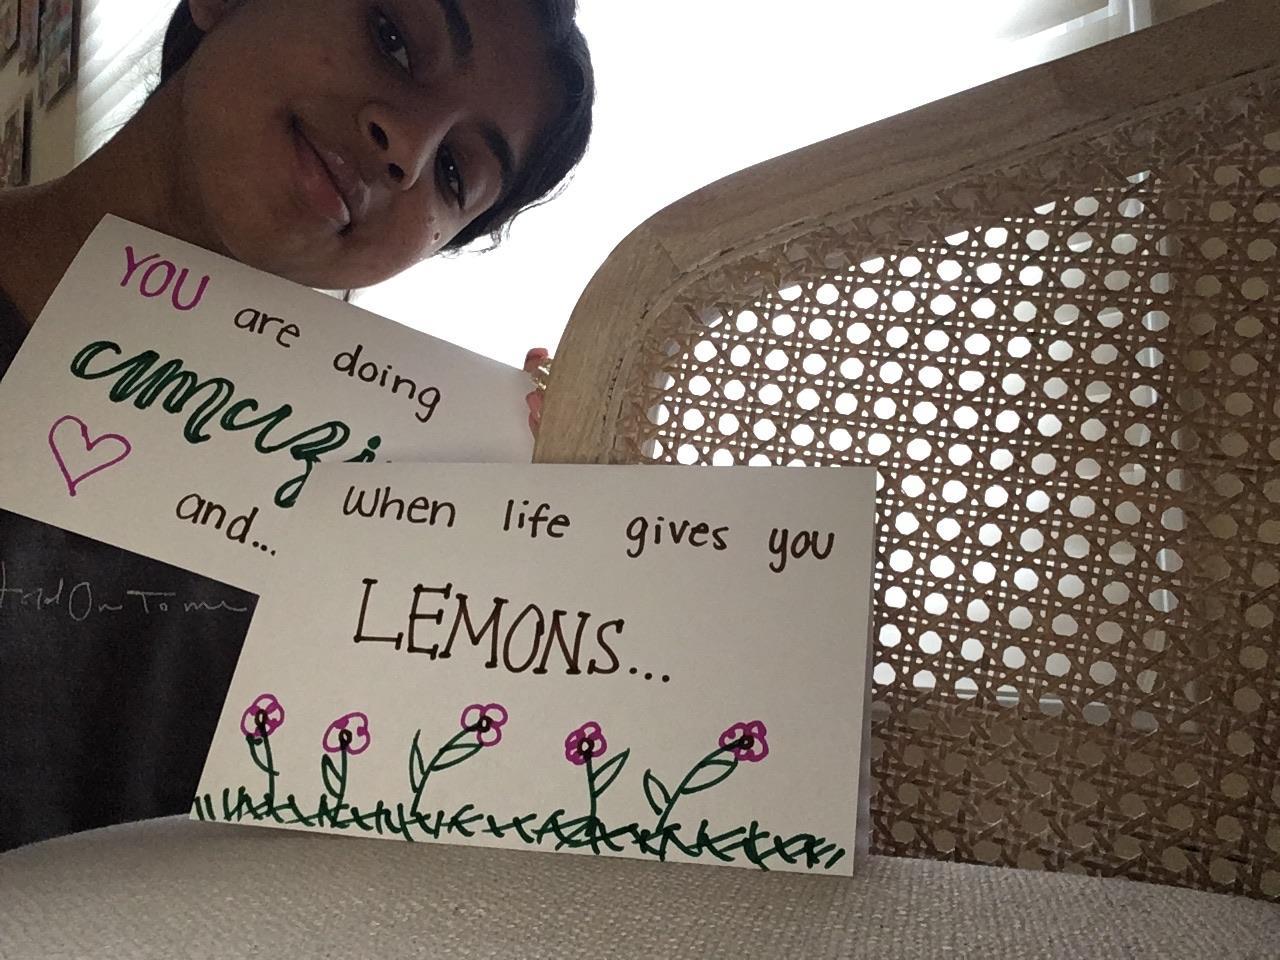 YOU are doing
amazi
and...
when life gives you
LEMONS...
Hold On To me